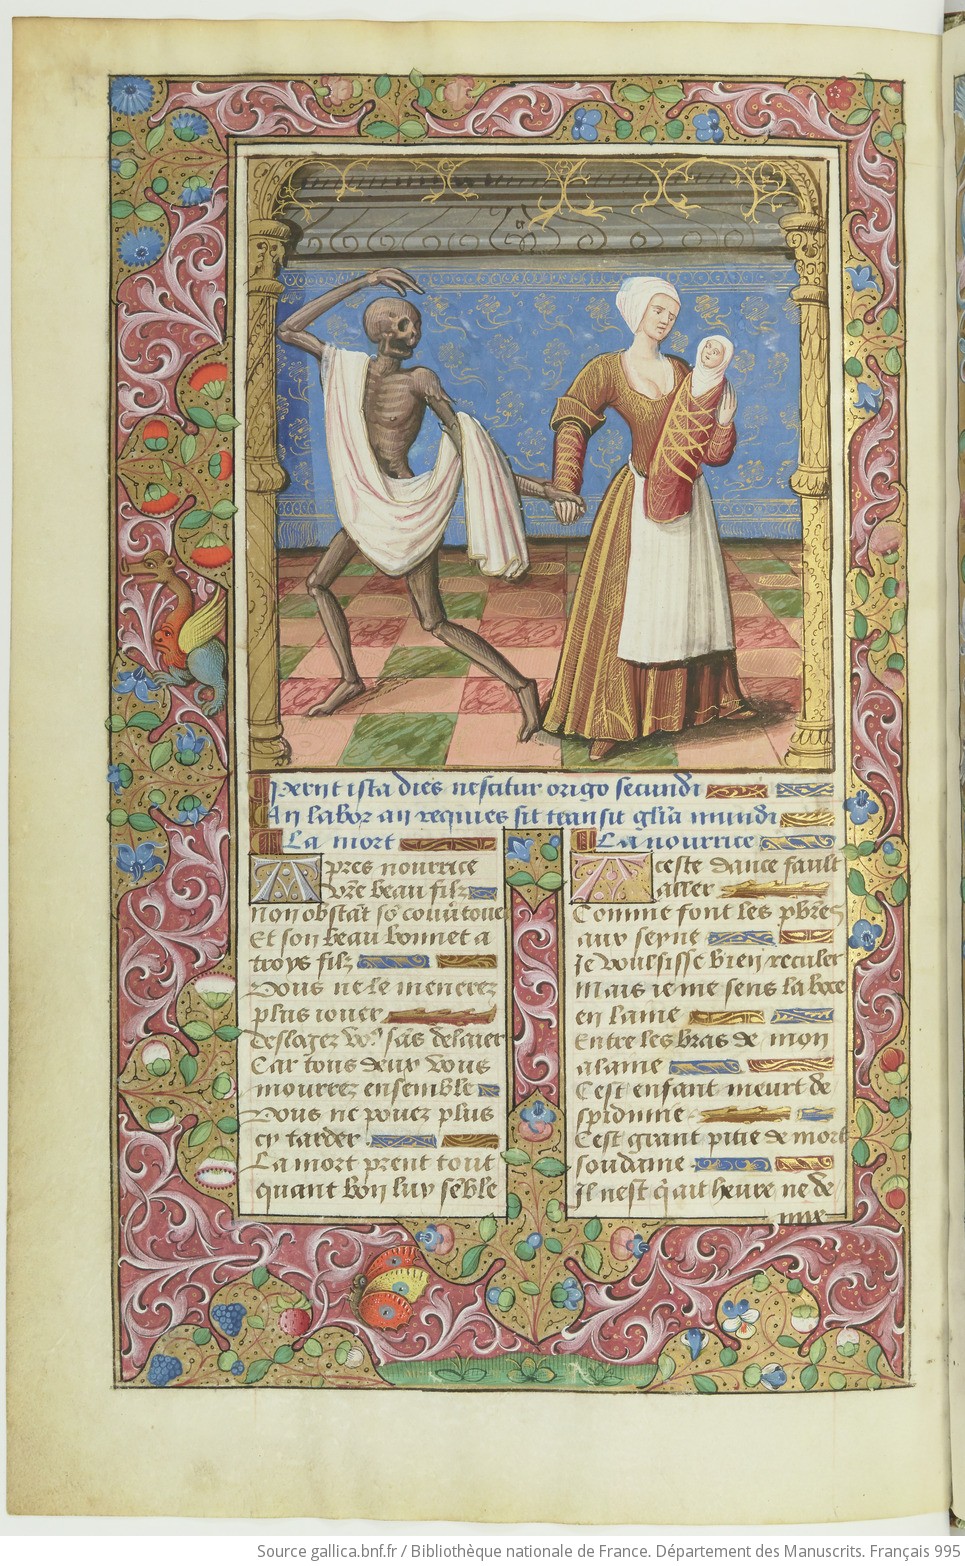 Perut ista dies nescitur origo secundi
An labor an requies sit transit glia mundi
La mort
Apres nourrice
vre beau filz
nonobstat so couutouer
Et son beau bonnet a
troys filz
Vous ne le menerez
plus iouer
deslogez vo' sas delaier
Car tous deux vous
mourrez ensemble
Vous ne pouez plus
cy tarder
La mort prent tout
quant bon luy seble
La nourrice
A ceste dance fault
aller
Comme font les pbres
au seyne
Je voulsisse bien reculer
Mais ie me sens la boce
en laine
Entre les bras de mon
alaine
Cest enfant meurt de
spidimie
Cest grant pitie de mort
soudaine
Il nest q ait heure ne de
mye
Source gallica.bnf.fr / Bibliothèque nationale de France. Département des Manuscrits. Français 995